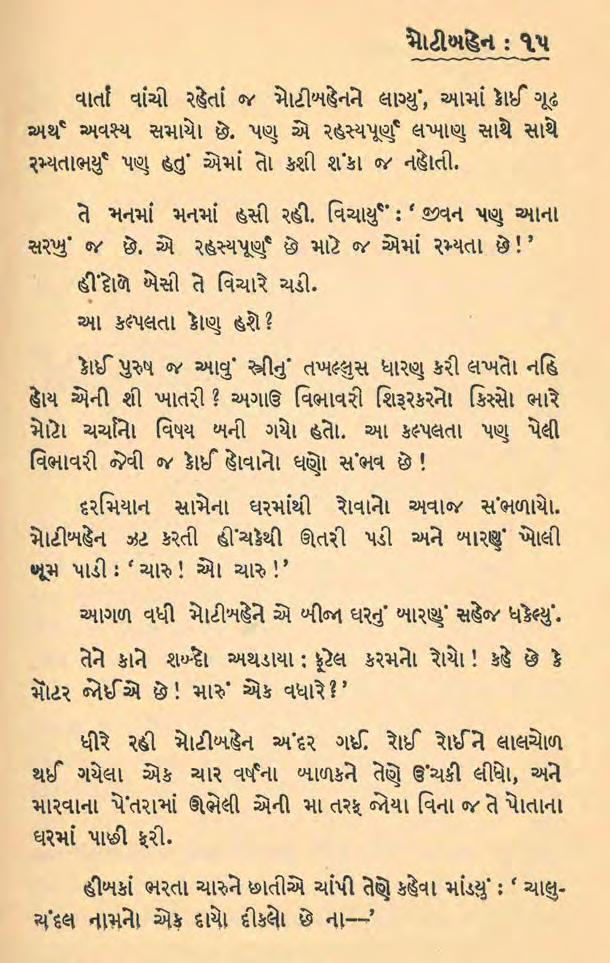 મોટીબહેન : ૧૫
વાર્તા વાંચી રહેતાં જ મોટીબહેનને લાગ્યું, આમાં કોઈ ગૂઢ
અર્થ અવશ્ય સમાયો છે. પણ એ રહસ્યપૂર્ણ લખાણ સાથે સાથે
રમ્યતાભર્યું પણ હતું એમાં તો કશી શંકા જ નહોતી.
તે મનમાં મનમાં હસી રહી. વિચાર્યું : ‘ જીવન પણ આના
સરખું જ છે. એ રહસ્યપૂર્ણ છે માટે જ એમાં રમ્યતા છે ! ’
હીંદોળે બેસી તે વિચારે ચડી.
આ કલ્પલતા કોણ હશે ?
કોઈ પુરુષ જ આવું સ્ત્રીનું તખલ્લુસ ધારણ કરી લખતો નહિ
હોય એની શી ખાતરી ? અગાઉ વિભાવરી શિરૂરકરનો કિસ્સો ભારે
મોટો ચર્ચાનો વિષય બની ગયો હતો. આ કલ્પલતા પણ પેલી
વિભાવરી જેવી જ કોઈ હોવાનો ઘણો સંભવ છે !
દરમિયાન સામેના ઘરમાંથી રોવાનો અવાજ સંભળાયો.
મોટીબહેન ઝટ કરતી હીંચકેથી ઊતરી પડી અને બારણું ખોલી
બૂમ પાડી : ‘ ચારુ ! ઓ ચારુ ! ’
આગળ વધી મોટીબહેને એ બીજા ઘરનું બારણું સહેજ ધકેલ્યું.
તેને કાને શબ્દો અથડાયા : ફૂટેલ કરમનો રોયો ! કહે છે કે
મૉટર જોઈએ છે ! મારું એક વધારે ? ’
ધીરે રહી મોટીબહેન અંદર ગઈ. રોઈ રોઈને લાલચોળ
થઈ ગયેલા એક ચાર વર્ષના બાળકને તેણે ઉંચકી લીધો, અને
મારવાના પેંતરામાં ઊભેલી એની મા તરફ જોયા વિના જ તે પોતાના
ઘરમાં પાછી ફરી.
હીબકાં ભરતા ચારુને છાતીએ ચાંપી તેણે કહેવા માંડ્યું : ‘ ચાલુ-
ચંદલ નામનો એક દાયો દીકલો છે ના—’